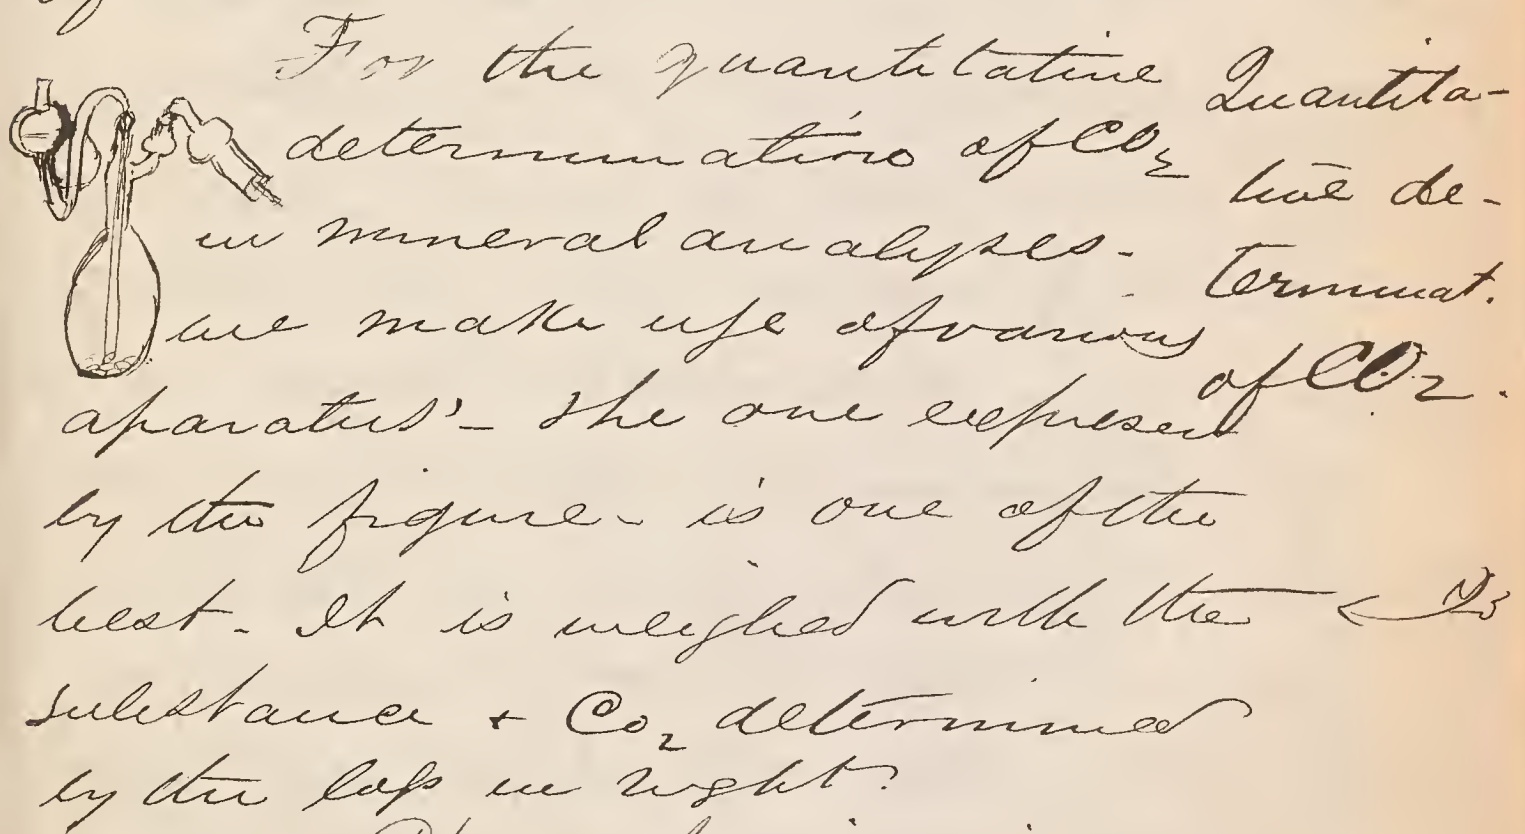 For the quantitative
determination of CO2
in mineral analyses -
we make use of various
aparatus' - The one expresed
by the figure - is one of the
best - It is weighed with the
substance + Co2 determined
by the loss in wght.
Quantita-
tive de-
terminat.
of CO2.